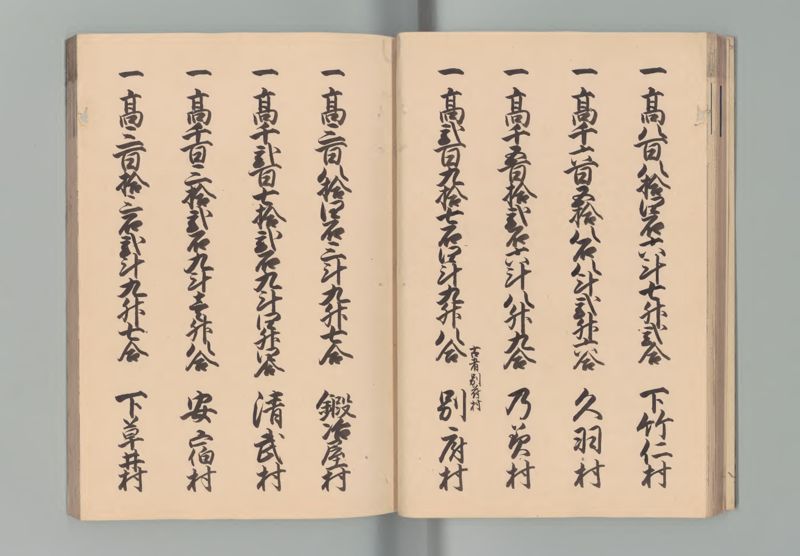 一 高八百八拾四石六斗七升弐合 下竹仁村
一 高千六百五拾八石八斗弐升六合 久羽村
一 高千五百拾弐石六斗八升九合 乃美村
古者別府村
一 高弐百九拾七石四斗九升八合 別府村
一 高三百八拾四石三斗九升七合 鍛冶屋村
一 高千弐百七拾弐石九斗四升四合 清武村
一 高千百三拾弐石九斗壱升八合 安宿村
一 高三百拾三石弐斗九升七合 下草井村